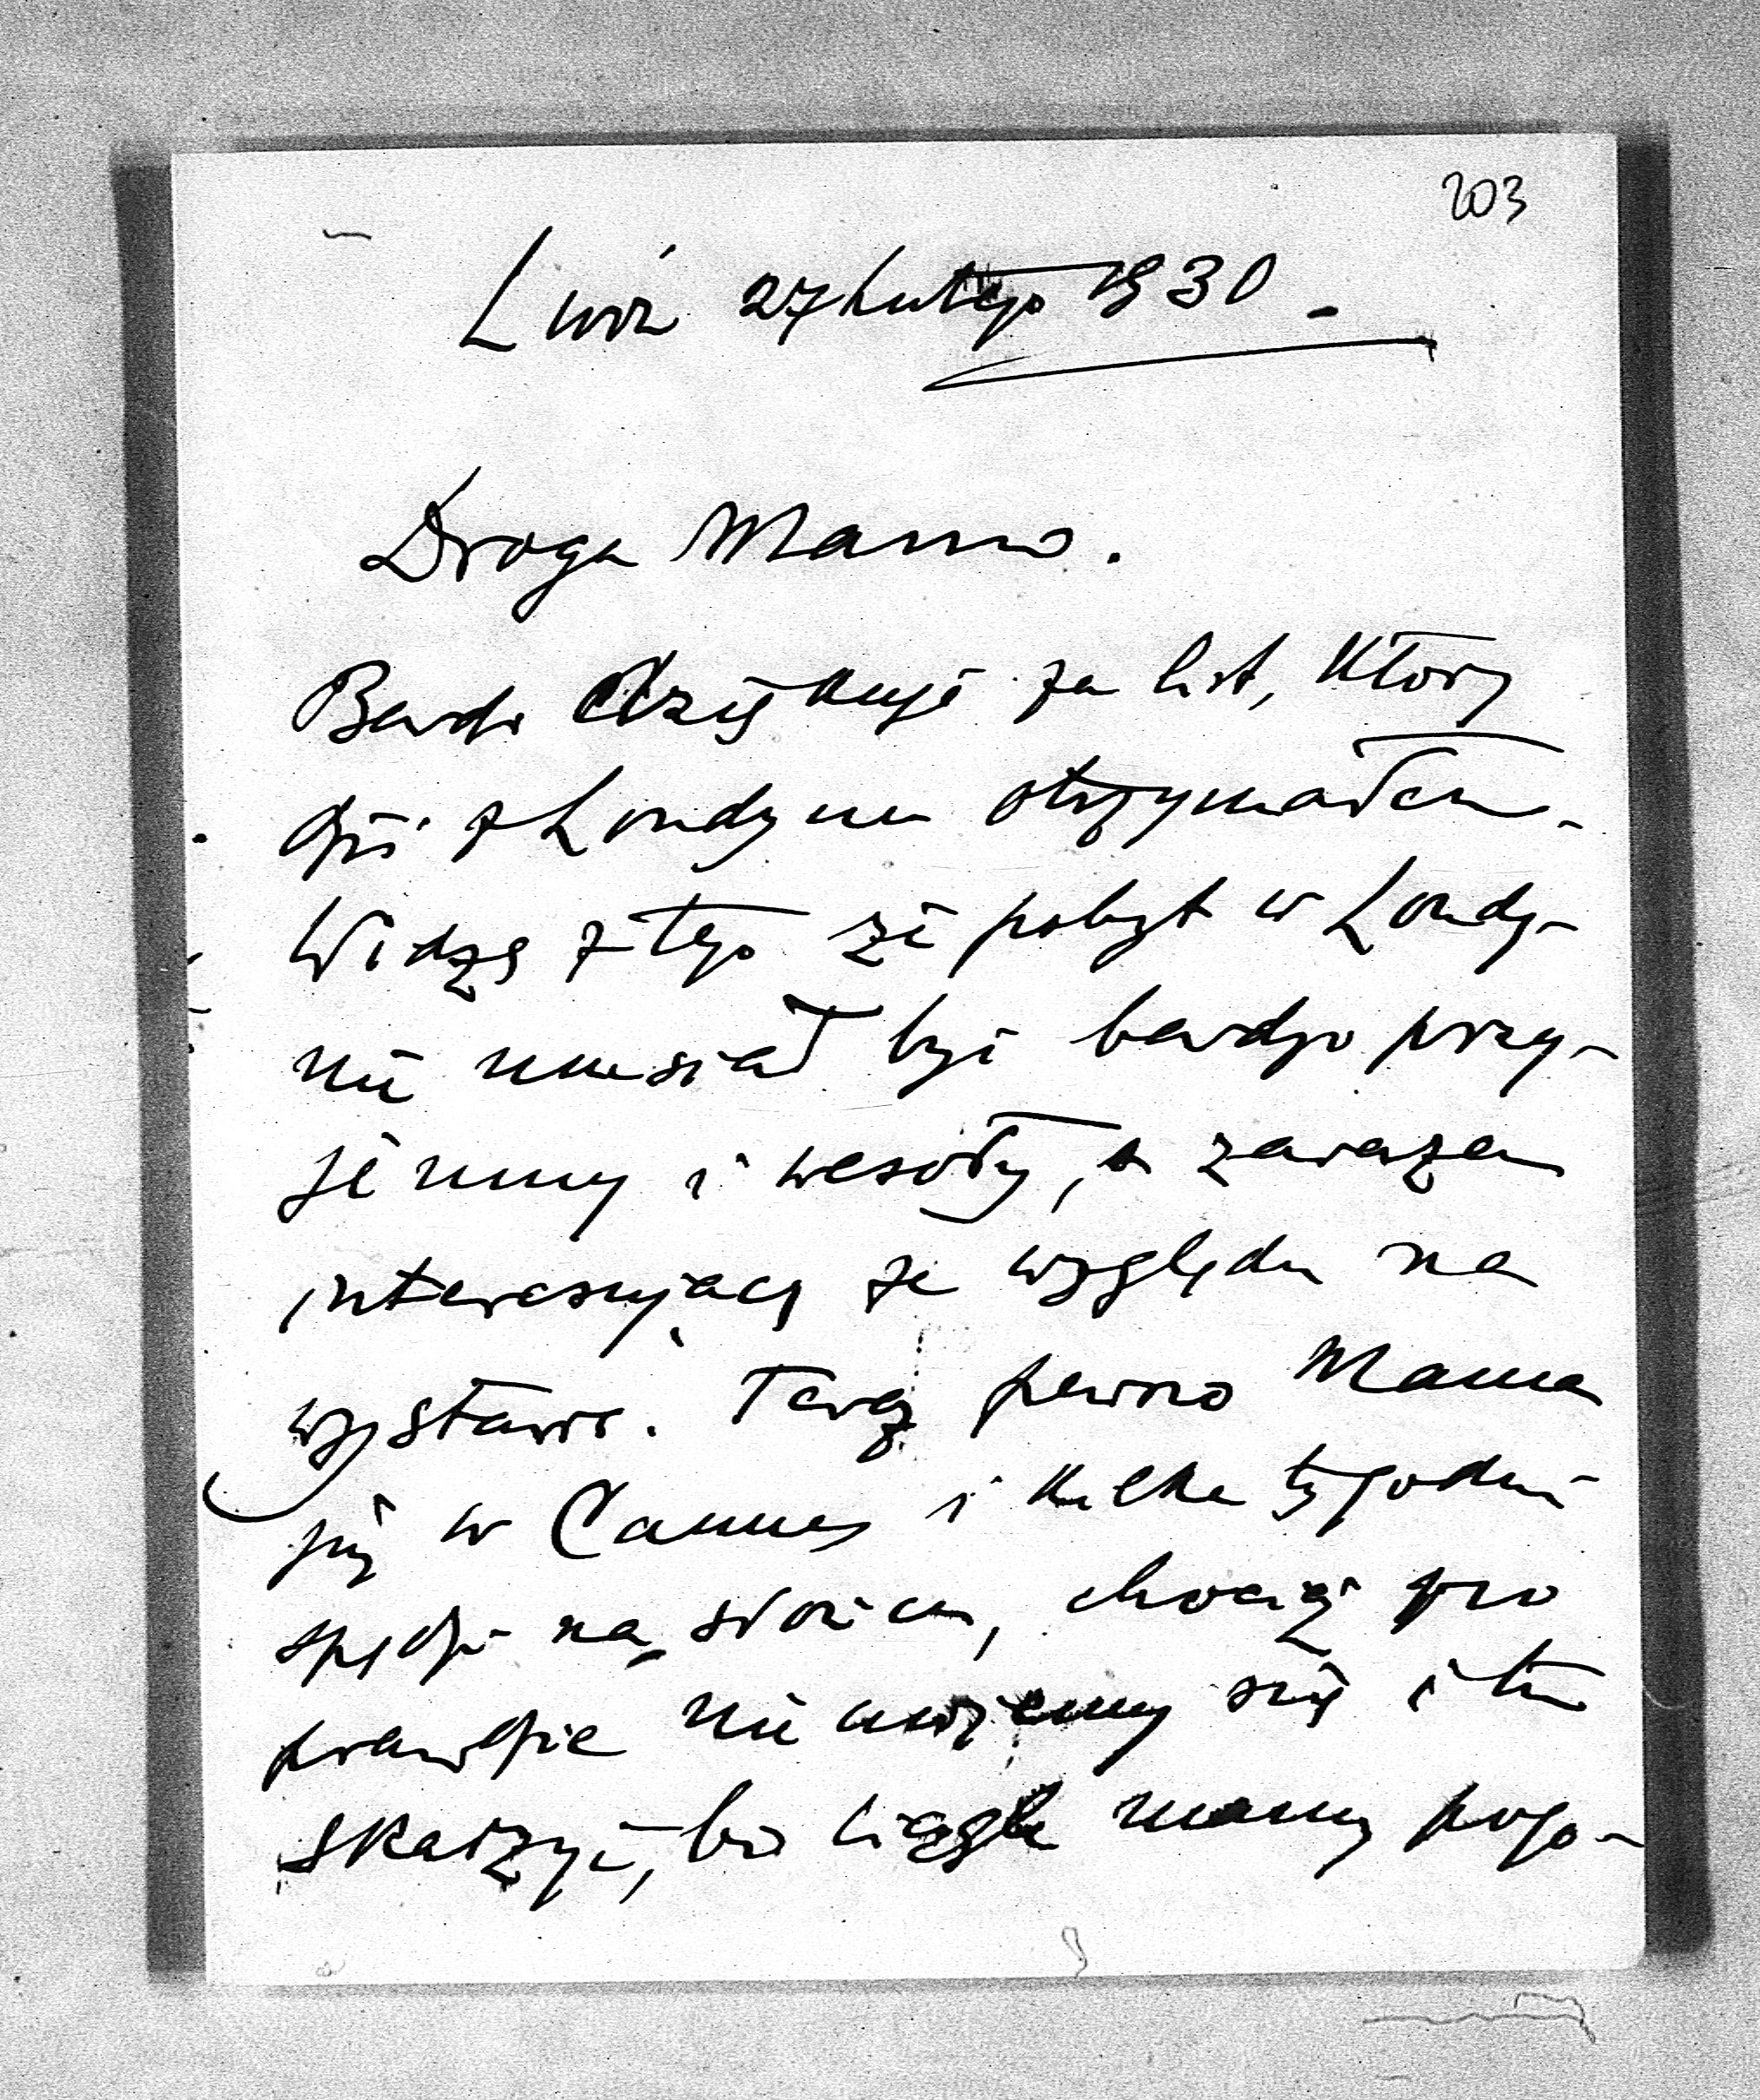 203
Lwów 27 Lutego 1930 -
Droga Mamo.
Bardzo dziękuję za list, który
dziś z Londynu otrzymałem.
Widzę z tego że pobyt w Londy-
nie musiał być bardzo przy-
jemny i wesoły, a zarazem
interesujący ze względu na
wystawę. Teraz pewno Mama
już w Cannes i kilka tygodni
spędzi na słońcu, chociaż po
prawdzie nie możemy się i tu
skarżyć, bo ciągle mamy pogo-